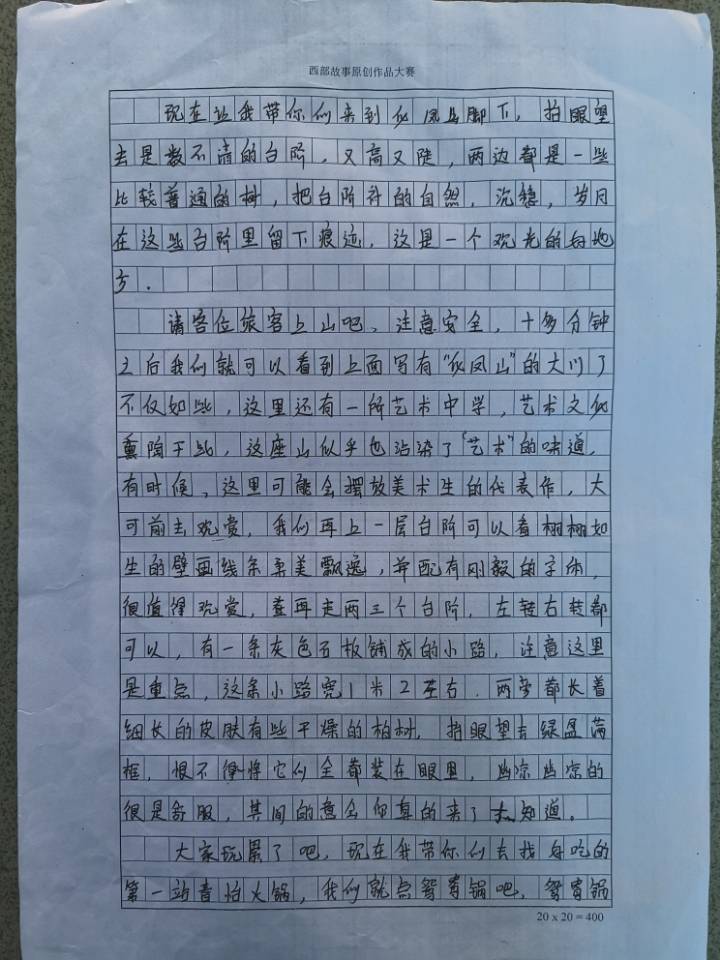 西部故事原创作品大赛
现在让我带你们来到仪凤山脚下，抬眼望
去是数不清的台阶，又高又陡，两边都是一些
比较普通的树，把台阶衬的自然，沉稳，岁月
在这些台阶里留下痕迹，这是一个观光的好地
方．
请各位旅客上山吧、注意安全，十多分钟
之后我们就可以看到上面写有“仪凤山”的大门了
不仅如此，这里还有一所艺术中学，艺术文化
熏陶于此，这座山似乎也沾染了“艺术”的味道．
有时候、这里可能会摆放美术生的代表作，大
可前去观赏，我们再上一层台阶可以看栩栩如
生的壁画线条柔美飘逸，并配有刚毅的字体，
很值得观赏，在再走两三个台阶，左转右转都
可以，有一条灰色石板铺成的小路，注意这里
是重点，这条小路宽1米2左右．两旁都长着
细长的皮肤有些干燥的柏树，抬眼望去绿盈满
框，恨不得将它们全都装在眼里，幽凉幽凉的
很是舒服，其间的意会你真的来了才知道。
大家玩累了吧，现在我带你们去找好吃的
第一站音怡火锅，我们就点鸳鸯锅吧，鸳鸯锅
20 x 20 = 400